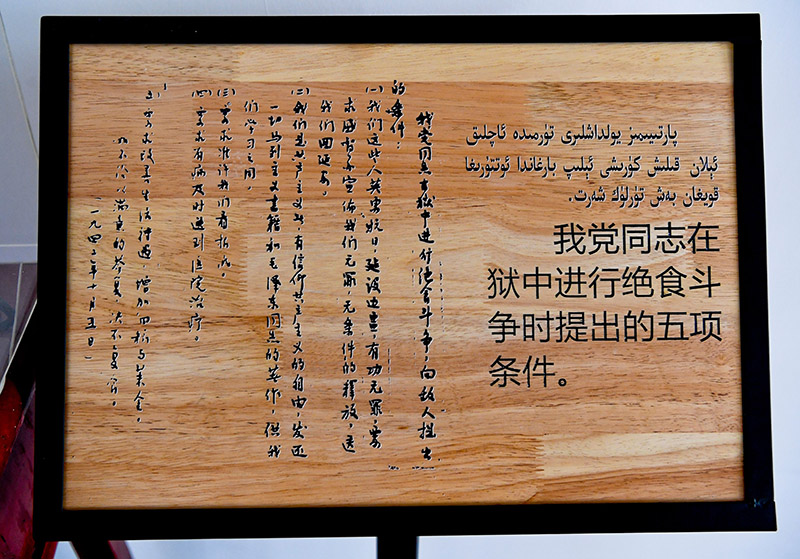 پارتىيىمىز يولداشلىرى تۈرمىدە ئاچلىق
ئېلان قىلىش كۈرىشى ئېلىپ بارغاندا ئوتتۇرىغا
قويغان بەش تۈرلۈك شەرت.
我党同志在
狱中进行绝食斗
争时提出的五项
条件。
我党同志在狱中进行绝食斗争,向敌人提出
的条件:
(一)我们这些人英勇抗日,建设边疆,有功无罪,要
求盛督办宣佈我们无罪,无条件的释放,送
我们回延安。
(二)我们是共产主义者,有信仰共产主义的自由,发还
一切马列主义书籍和毛泽东同志的著作,供我
们学习之用。
(三)要求准许我们看报纸。
(四)要求有病及时送到医院治疗。
(五)要求改善生活待遇,增加口粮与菜金。
如不给以满意的答复,决不复食。
(一九四 年十月五日)